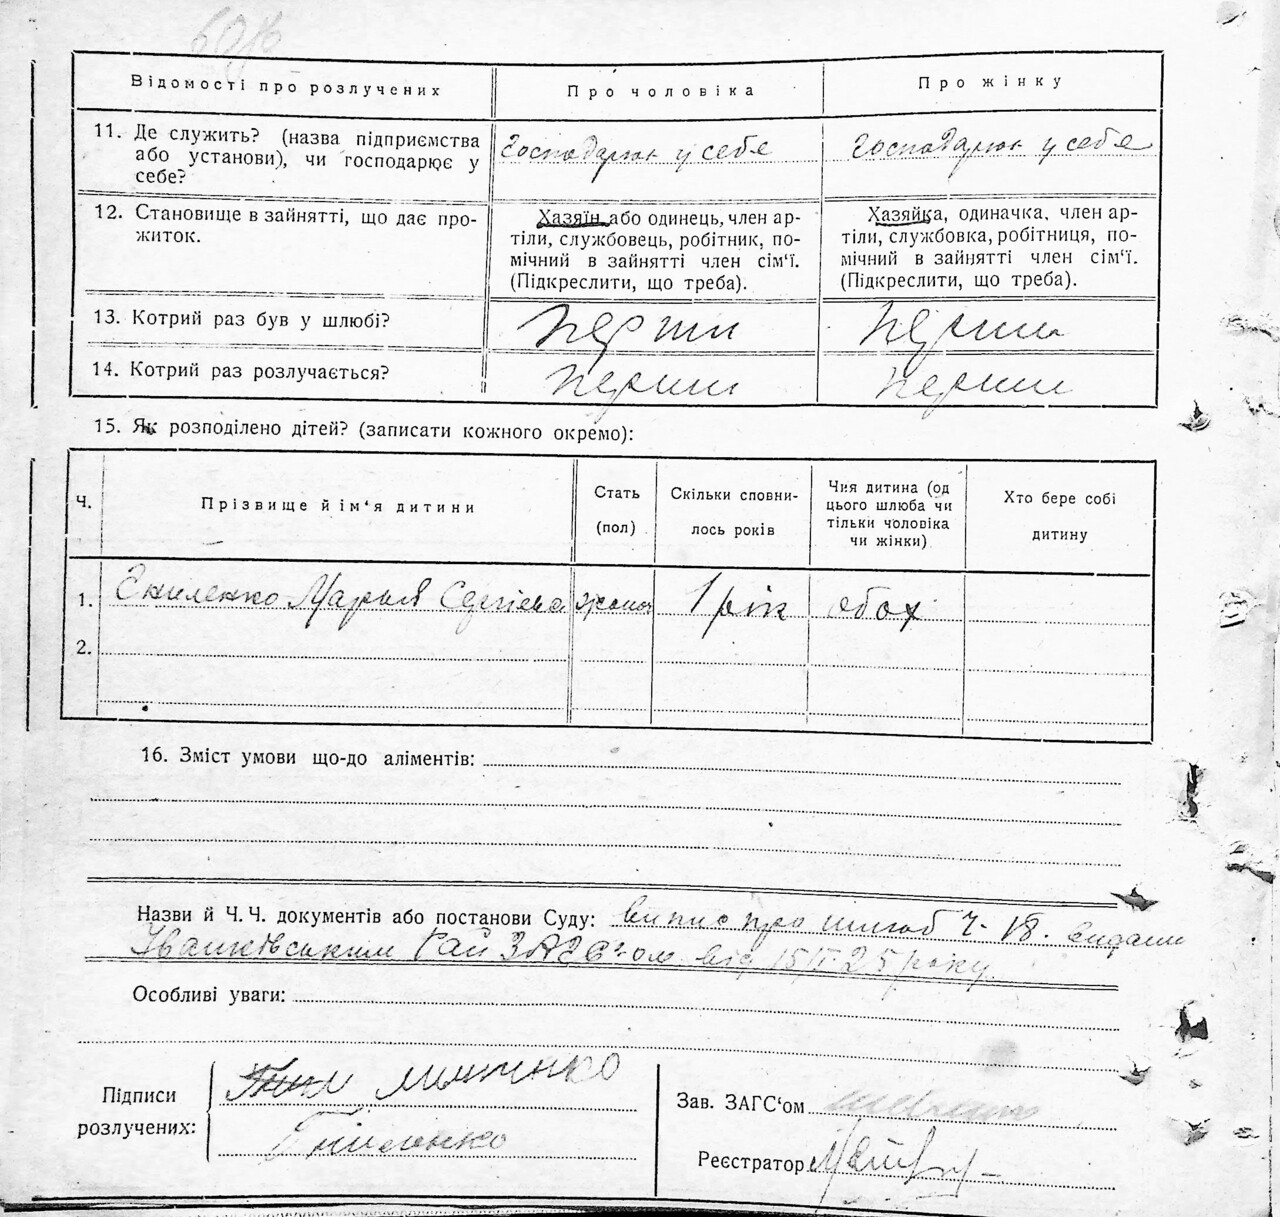 Відомості про розлучених
Про чоловіка
Про жінку
11. Де служить? (назва підприємства
або установи), чи господарює у
себе?
Господарює у себе
Господарює у себе
12. Становище в зайнятті, що дає про-
житок.
Хазяїн або одинець, член ар-
тіли, службовець, робітник, по-
мічний в зайнятті член сім‘ї.
(Підкреслити, що треба).
Хазяйка, одиначка, член ар-
тіли, службовка, робітниця, по-
мічний в зайнятті член сім‘ї.
(Підкреслити, що треба).
13. Котрий раз був у шлюбі?
перший
перший
14. Котрий раз розлучається?
перший
перший
15. Як розподілено дітей? (записати кожного окремо):
Ч.
Прізвище й ім‘я дитини
Стать
(пол)
Скільки сповни-
лось років
Чия дитина (од
цього шлюба чи
тільки чоловіка
чи жінки)
Хто бере собі
дитину
1.
Марья
1 рік
обох
2.
16. Зміст умови що-до аліментів:
Назви й Ч. Ч. документів або постанови Суду: випис про шлюб Ч- 18. видани
Іванківським Рай ЗАГС‘ом від 15/II 25 року
Особливі уваги:
Підписи
розлучених:
Гниленко
Зав. ЗАГС‘ом
Реєстратор